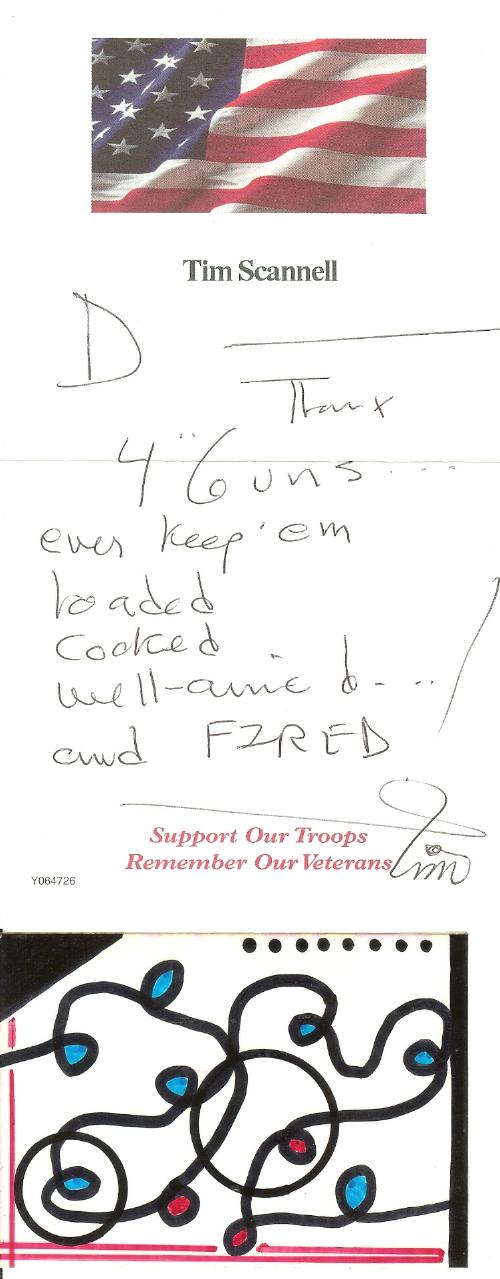 Tim Scannell
D
Thanx
4 "Guns....
ever keep 'em
loaded
cocked
well-aimed....
and FIRED!
Support Our Troops
Remember Our Veterans
Tim
Y064726